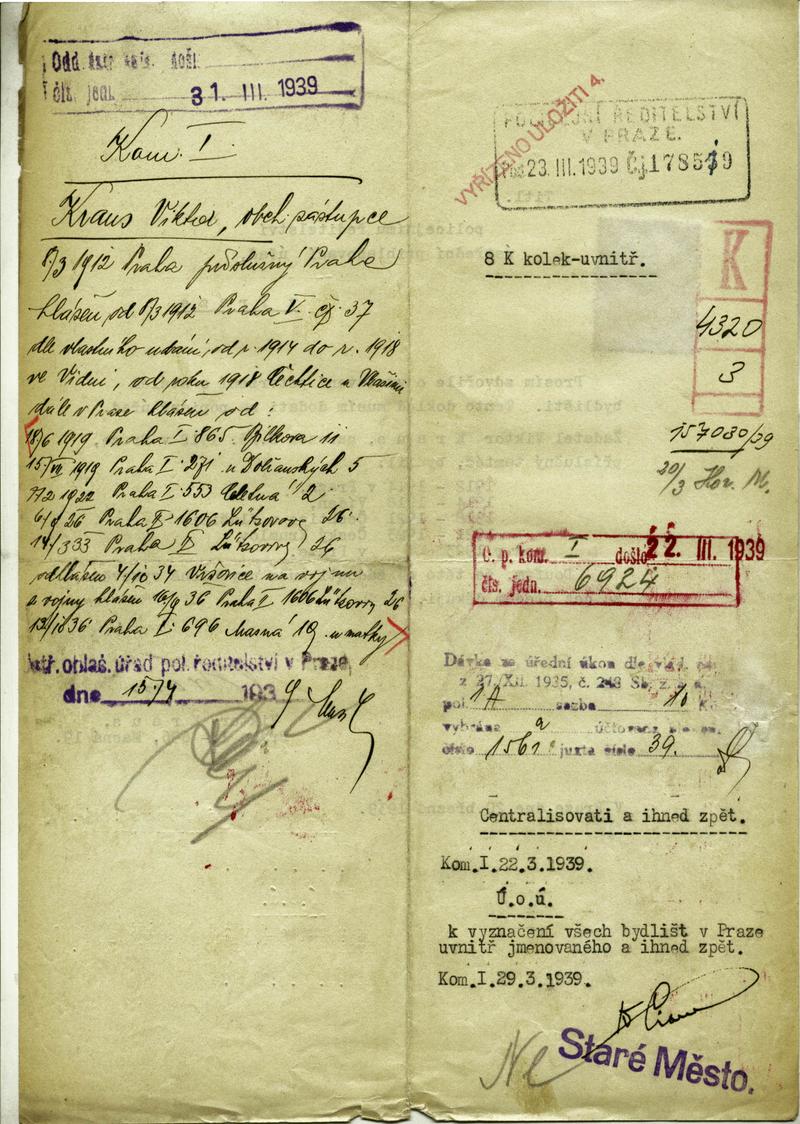 Odd. došl.
čís. jedn. 31. III. 1939
Kom. I.
Kraus Viktor, obch. zástupce
8/3 1912 Praha příslušný Praha
hlášen od 8/3 1912 Praha V. čp. 37
dle vlastního udání od r. 1914 do r. 1918
ve Vídni, od roku 1918 Čechtice u Vlašimi
dále v Praze hlášen od:
18/6 1919 Praha I. 865 Bílkova 11
15/VII 1919 Praha I. 271 u Dobřanských 5
7/2 1922 Praha I. 553 Celetná 2
26 Praha II 1606 Lützovova 26
Praha II Lützovovy 26
odhlášen 4/10 34 Vršovice na vojnu
z vojny hlášen 16/9 36 Praha II 1606 Lützovovy 26
Praha I. 696 Masná 19 u matky
ohlaš. úřad pol. ředitelství v Praze,
dne 15/4 193 9
VYŘÍZENO ULOŽITI 4.
POLICEJNÍ ŘEDITELSTVÍ
V PRAZE.
23. III. 1939 Čj.
8 K kolek-uvnitř.
K
4320
3
157080/39
20/3
C. p. kom. I došlo 22. III. 1939
čís. jedn. 6924
Dávka za úřední úkon dle vlád. nař.
z 27/XII. 1935, č. 243 Sb. z. a n.
pol. 1A sazba 10 Kč
vybrána účtována
číslo juxta číslo 39.
Centralisovati a ihned zpět.
Kom.I.22.3.1939.
Ú.o.ú.
k vyznačení všech bydlišť v Praze
uvnitř jmenovaného a ihned zpět.
Kom.I.29.3.1939.
Staré Město.